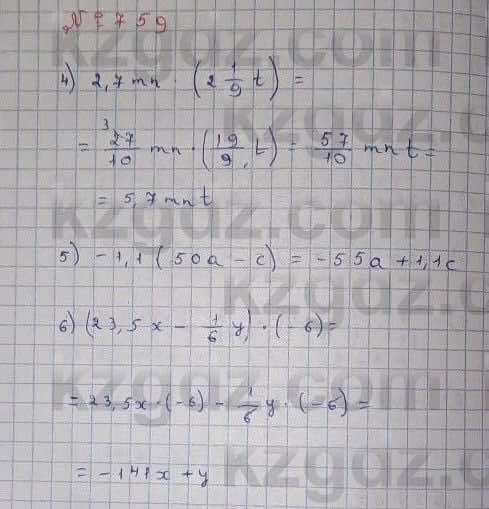 № 759
4) 2,7mn · (2 1/9 t) =
= 27/10 mn · (19/9 t) = 57/10 mn t =
3
= 5,7mnt
5) -1,1 (50a - c) = -55a + 1,1c
6) (23,5x - 1/6 y) · (-6) =
= 23,5x · (-6) - 1/6 y · (-6) =
= -141x + y
kzgdz.com